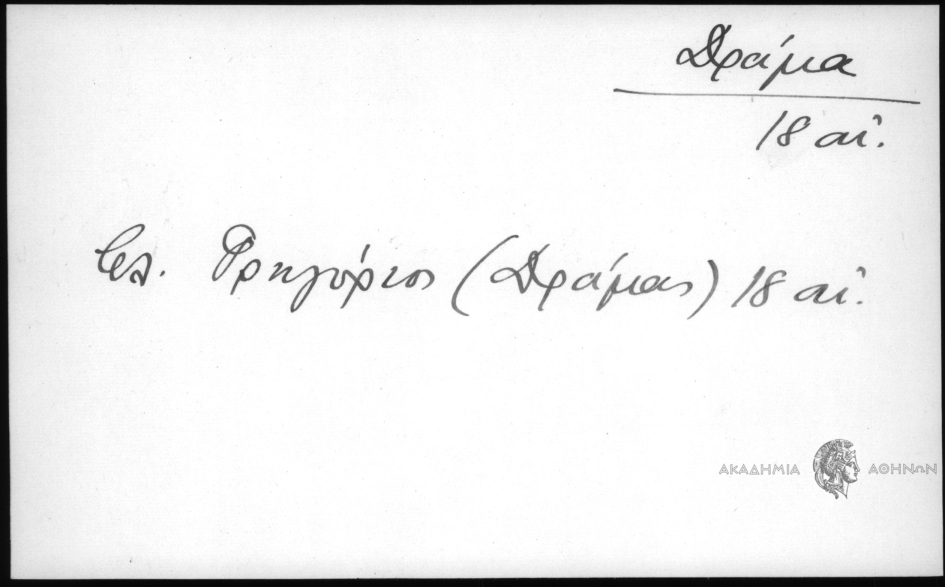 Δράμα
18 αἰ.
βλ. Γρηγόριος (Δράμας) 18 αἰ.
ΑΚΑΔΗΜΙΑ ΑΘΗΝΩΝ